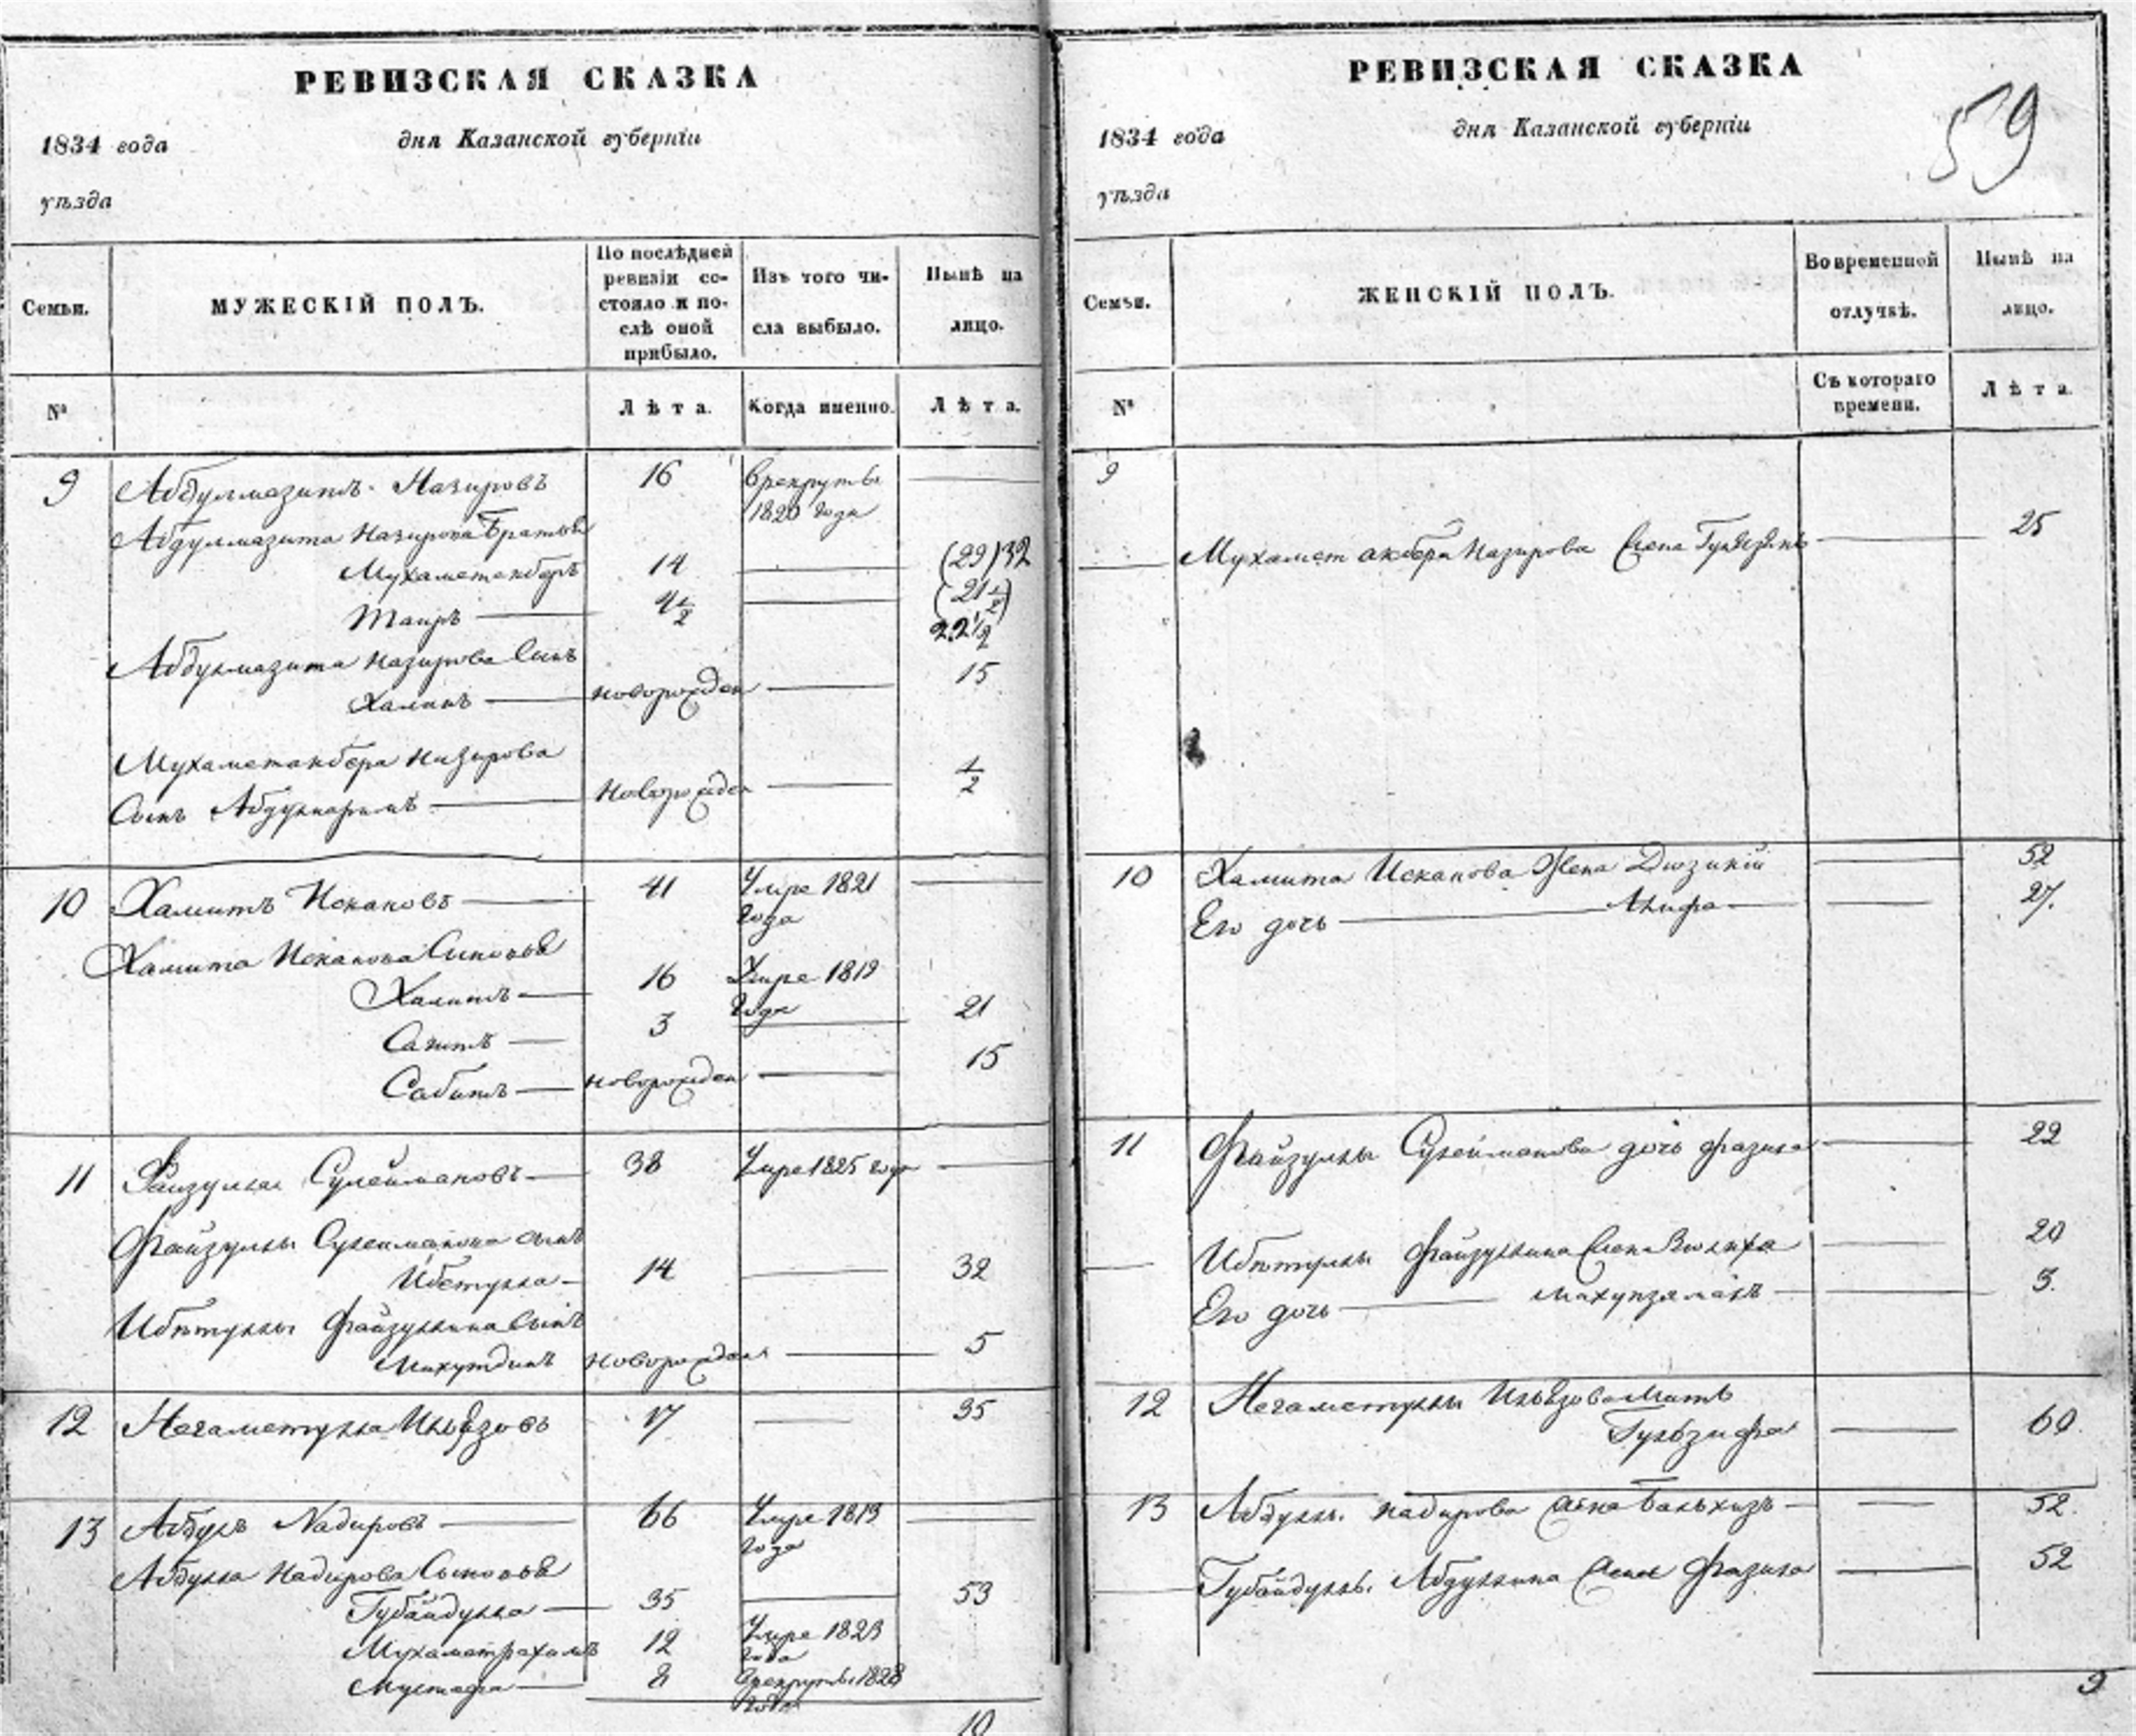 РЕВИЗСКАЯ СКАЗКА
1834 года дня Казанской губерніи
уѣзда
Семьи. МУЖЕСКІЙ ПОЛЪ. По послѣдней ревизіи состояло и послѣ оной прибыло. Изъ того числа выбыло. Нынѣ на лицо.
№ Лѣта. Когда именно. Лѣта.
9 Абдулмазитъ Назировъ 16 в рекруты
1820 года
Абдулмазита Назирова Братья
Мухаметакберъ 14 (29) 32
Таиръ 4½ (21½)
22½
Абдулмазита Назирова Сынъ
новорожден 15
Мухаметакбера Назирова
Сынъ Абдулкаримъ новорожден ½
10 Хамитъ Искаковъ 41 Умре 1821
года
Хамита Искакова Сыновья
Халитъ 16 Умре 1819
года
Сагитъ 3 21
Сабитъ новорожден 15
11 Фаизулла Сулеймановъ 38 Умре 1825 года
Файзуллы Сулейманова сынъ
Ибетулла 14 32
Ибетуллы Файзуллина Сынъ
новорожден 5
12 Негаметулла Ильязовъ 17 35
13 Абдулъ Надировъ 66 Умре 1819
года
Абдулла Надирова Сыновья
Губайдулла 35 53
Мухаметрахимъ 12 Умре 1823
года
Мустафа 8 в рекруты 1828
года
10
РЕВИЗСКАЯ СКАЗКА
59
1834 года дня Казанской губерніи
уѣзда
Семьи. ЖЕНСКІЙ ПОЛЪ. Во временной отлучкѣ. Нынѣ на лицо.
№ Съ котораго времени. Лѣта.
9
Мухамет акбера Назирова Жена 25
10 Хамита Искакова Жена 52
Его дочь 27.
11 Файзуллы Сулейманова дочь Фазила 22
Ибетуллы Файзуллина Жена 20
Его дочь 3.
12 Негаметуллы Ильязова Мать
Гульзифа 60.
13 Абдуллы Надирова Жена 52.
Губайдуллы Абдуллина Жена Фазила 52
9